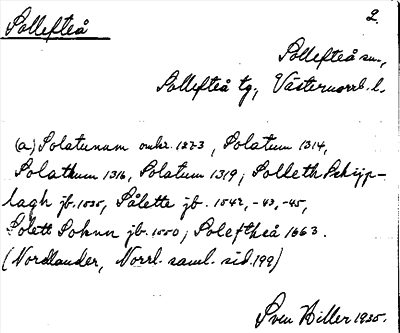 Sollefteå
2.
Sollefteå sn.,
Sollefteå tg., Västernorrl. l.
(a) Solatunum omkr. 1273, Solatum 1314,
Solathum 1316, Solatum 1319; Solleth Skipp-
lagh jb. 1535, Sålette jb. 1542, -43, -45,
Solett Sohnn jb. 1550; Soleftheå 1663.
(Nordlander, Norrl. saml. sid. 199)
Sven Hiller 1935.